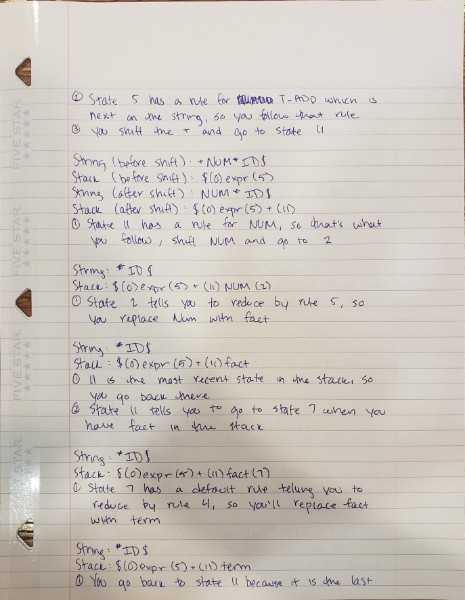 ② State 5 has a rule for T-ADD which is
next on the string, so you follow that rule
③ You shift the + and go to state 11
String (before shift): +NUM*ID$
Stack (before shift): $(0)expr(5)
String (after shift): NUM*ID$
Stack (after shift): $(0)expr(5)+(11)
① State 11 has a rule for NUM, so that's what
you follow, shift NUM and go to 2
String: *ID$
Stack: $(0)expr(5)+(11)NUM(2)
① State 2 tells you to reduce by rule 5, so
you replace Num with fact
String: *ID$
Stack: $(0)expr(5)+(11)fact
① 11 is the most recent state in the stack, so
you go back there
② State 11 tells you to go to state 7 when you
have fact in the stack
String: *ID$
Stack: $(0)expr(5)+(11)fact(7)
① State 7 has a default rule telling you to
reduce by rule 4, so you'll replace fact
with term
String: *ID$
Stack: $(0)expr(5)+(11)term
① You go back to state 11 because it is the last
FIVE STAR
FIVE STAR
FIVE STAR
FIVE STAR